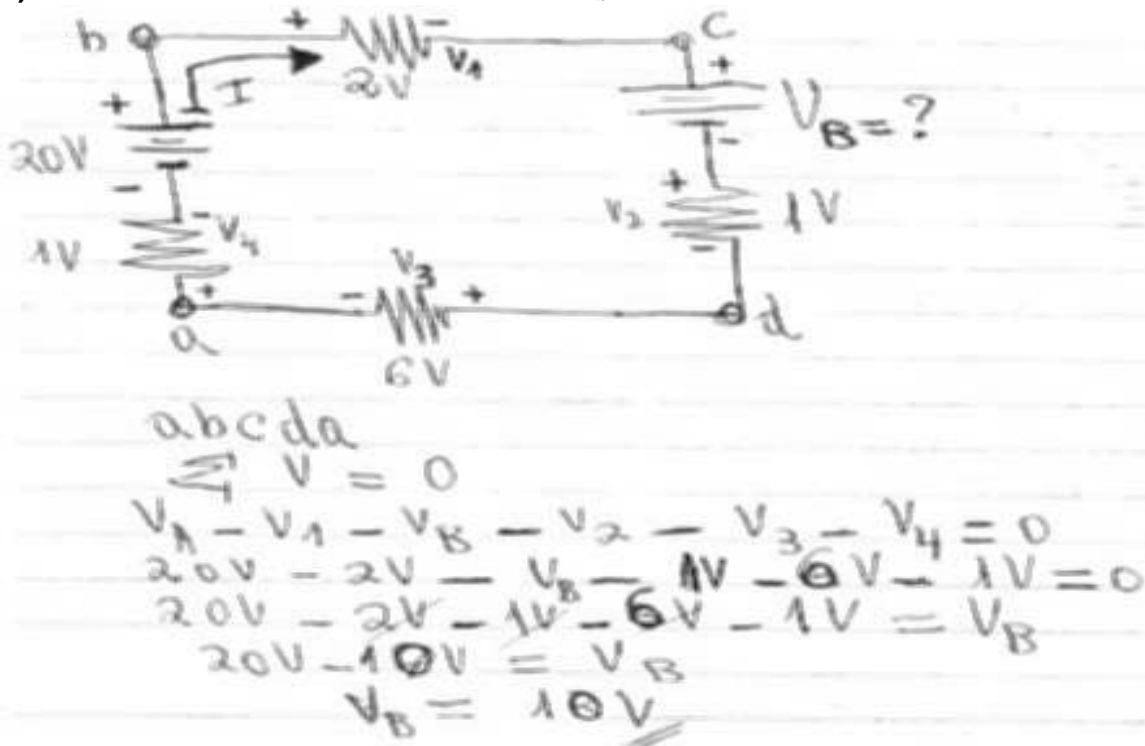 b + - C
I V1
2V
+ +
20V VB = ?
- -
- V4 + V2 1V
1V V3 -
+ - +
a d
6V
abcda
Σ V = 0
VA - V1 - VB - V2 - V3 - V4 = 0
20V - 2V - VB - 1V - 6V - 1V = 0
20V - 2V - 1V - 6V - 1V = VB
20V - 10V = VB
VB = 10V